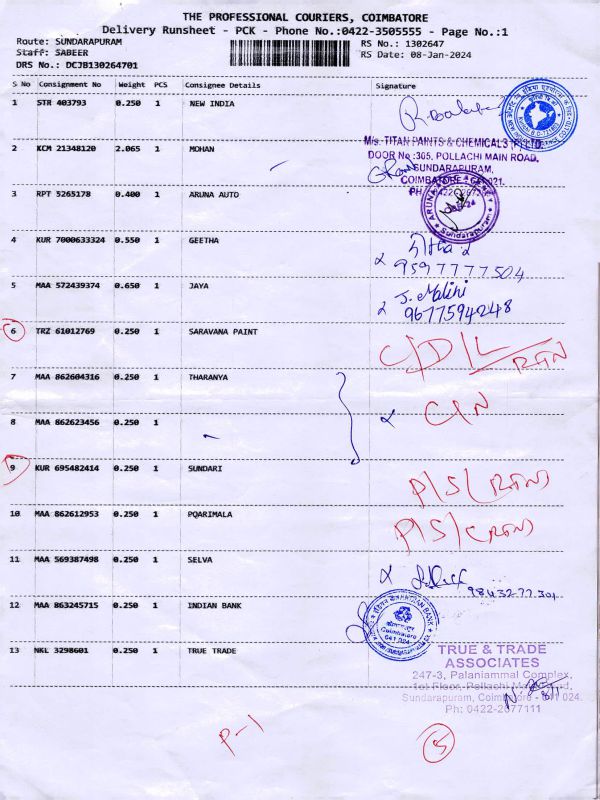 THE PROFESSIONAL COURIERS, COIMBATORE
Delivery Runsheet - PCK - Phone No.:0422-3505555 - Page No.:1
Route: SUNDARAPURAM
Staff: SABEER
DRS No.: DCJB130264701
RS No.: 1302647
RS Date: 08-Jan-2024
S No Consignment No Weight PCS Consignee Details Signature
1 STR 403793 0.250 1 NEW INDIA
2 KCM 21348120 2.065 1 MOHAN
M/s. TITAN PAINTS & CHEMICALS (P) LTD.
DOOR No :305, POLLACHI MAIN ROAD,
SUNDARAPURAM,
COIMBATORE - 641 021.
3 RPT 5265178 0.400 1 ARUNA AUTO
Sundarapuram
4 KUR 7000633324 0.550 1 GEETHA
9597777504
5 MAA 572439374 0.650 1 JAYA
J. Malini
9677594248
6 TRZ 61012769 0.250 1 SARAVANA PAINT
C/D/L RTN
7 MAA 862604316 0.250 1 THARANYA
C/N
8 MAA 862623456 0.250 1
9 KUR 695482414 0.250 1 SUNDARI
P/S/ RTN
10 MAA 862612953 0.250 1 PQARIMALA
P/S/ RTN
11 MAA 569387498 0.250 1 SELVA
9843277301
12 MAA 863245715 0.250 1 INDIAN BANK
Coimbatore
641 024
13 NKL 3298601 0.250 1 TRUE TRADE
TRUE & TRADE
ASSOCIATES
247-3, Palaniammal Complex,
1st Floor, Pollachi Main Road,
Sundarapuram, Coimbatore - 641 024.
Ph: 0422-2677111
P-1
5